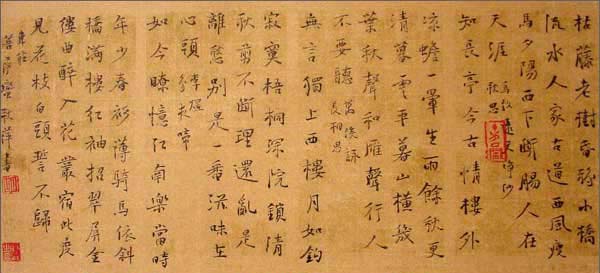 枯藤老樹昏鴉小橋
流水人家古道西風瘦
馬夕陽西下斷腸人在
天涯 馬致遠天淨沙 秋思
短長亭今古情樓外
涼蟾一暈生雨餘秋更
清暮雲平暮山橫幾
葉秋聲和雁聲行人
不要聽 萬俟詠 長相思
無言獨上西樓月如鈎
寂寞梧桐深院鎖清
秋剪不斷理還亂是
離愁別是一番滋味在
心頭 李煜 烏夜啼
如今卻憶江南樂當時
年少春衫薄騎馬依斜
橋滿樓紅袖招翠屏金
屈曲醉入花叢宿此度
見花枝白頭誓不歸
韋莊
菩薩蠻 秋萍書